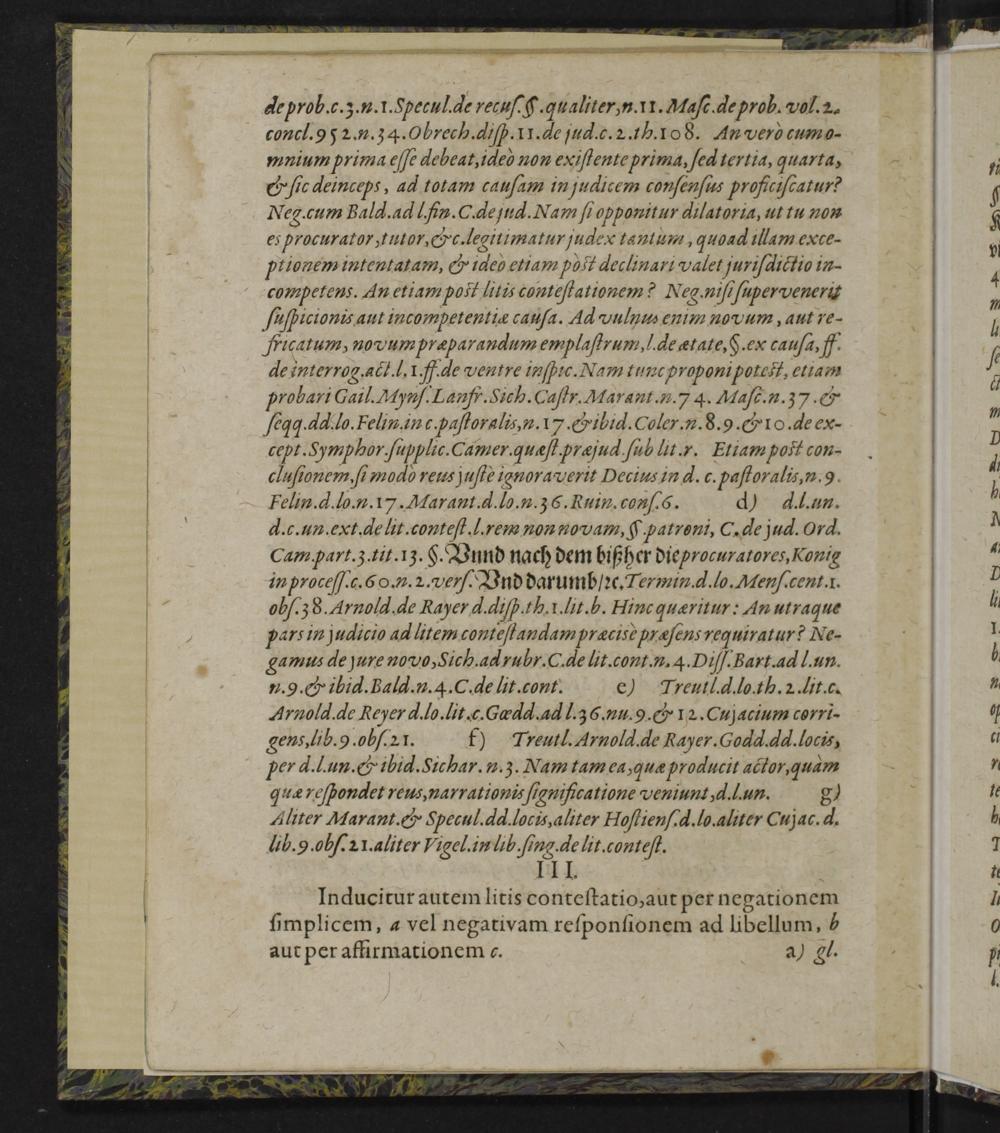 de prob.c.3.n.1.Specul.de recuſ.§.qualiter,n.11. Maſc.de prob. vol.2.
concl.952.n.34.Obrech.diſp.11.de jud.c.2.th.108. An verò cum o-
mnium prima eſſe debeat,ideò non exiſtente prima, ſed tertia, quarta,
& ſic deinceps, ad totam cauſam in judicem conſenſus proficiſcatur?
Neg.cum Bald.ad l.fin.C.de jud.Nam ſi opponitur dilatoria, ut tu non
es procurator,tutor,&c.legitimatur judex tantum, quoad illam exce-
ptionem intentatam, & ideò etiam pòst declinari valet jurisdictio in-
competens. An etiam post litis conteſtationem? Neg.niſi ſupervenerit
ſuſpicionis aut incompetentiæ cauſa. Ad vulnus enim novum, aut re-
fricatum, novum præparandum emplaſtrum,l.de ætate,§.ex cauſa,ff.
de interrog.act.l.1.ff.de ventre inſpic.Nam tunc proponi potest, etiam
probari Gail.Mynſ.Lanfr.Sich.Caſtr.Marant.n.74. Maſc.n.37.&
ſeqq.dd.lo.Felin.in c.paſtoralis,n.17.&ibid.Coler.n.8.9.&10.de ex-
cept.Symphor.ſupplic.Camer.quæſt.præjud.ſub lit.r. Etiam post con-
cluſionem,ſi modò reus juſtè ignoraverit Decius in d. c.paſtoralis,n.9.
Felin.d.lo.n.17.Marant.d.lo.n.36.Ruin.conſ.6. d) d.l.un.
d.c.un.ext.de lit.conteſt.l.rem non novam,§.patroni, C.de jud. Ord.
Cam.part.3.tit.13.§.Vnnd nach dem bißher die procuratores,Konig
in proceſſ.c.60.n.2.verſ.Vnd darumb/ꝛc.Termin.d.lo.Menſ.cent.1.
obſ.38.Arnold.de Rayer d.diſp.th.1.lit.b. Hinc quæritur: An utraque
pars in judicio ad litem conteſtandam præcisè præſens requiratur? Ne-
gamus de jure novo,Sich.ad rubr.C.de lit.cont.n.4.Diſſ.Bart.ad l.un.
n.9.& ibid.Bald.n.4.C.de lit.cont. e) Treutl.d.lo.th.2.lit.c.
Arnold.de Reyer d.lo.lit.c.Gœdd.ad l.36.nu.9.&12.Cujacium corri-
gens,lib.9.obſ.21. f) Treutl.Arnold.de Rayer.Godd.dd.locis,
per d.l.un.& ibid.Sichar.n.3. Nam tam ea,quæ producit actor,quàm
quæ reſpondet reus,narrationis ſignificatione veniunt,d.l.un. g)
Aliter Marant.& Specul.dd.locis,aliter Hoſtienſ.d.lo.aliter Cujac.d.
lib.9.obſ.21.aliter Vigel.in lib.ſing.de lit.conteſt.
III.
Inducitur autem litis conteſtatio,aut per negationem
ſimplicem, a vel negativam reſponſionem ad libellum, b
aut per affirmationem c. a) gl.